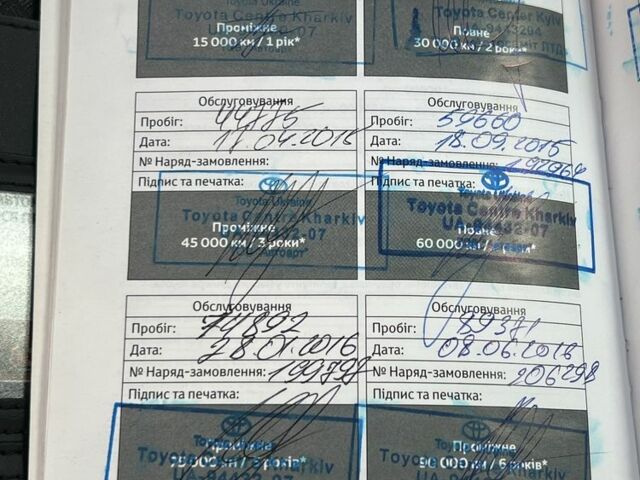 Toyota Ukraine
Toyota Center Kyiv
Проміжне
15 000 км / 1 рік*
Повне
30 000 км / 2 роки*
Обслуговування
Пробіг: 44775
Дата: 17.04.2015
№ Наряд-замовлення:
Підпис та печатка:
Toyota Ukraine
Toyota Centre Kharkiv
UA-94432-07
Автоарт
Проміжне
45 000 км / 3 роки*
Обслуговування
Пробіг: 59660
Дата: 18.09.2015
№ Наряд-замовлення: 192964
Підпис та печатка:
Toyota Ukraine
Toyota Centre Kharkiv
UA-94432-07
Повне
60 000 км /
Обслуговування
Пробіг: 74892
Дата: 28.01.2016
№ Наряд-замовлення: 199798
Підпис та печатка:
Toyota Ukraine
Toyota Centre Kharkiv
UA-94432-07
Проміжне
Обслуговування
Пробіг: 89371
Дата: 08.06.2016
№ Наряд-замовлення: 206298
Підпис та печатка:
Toyota Ukraine
Toyota Centre Kharkiv
Проміжне
90 000 км / 6 років*